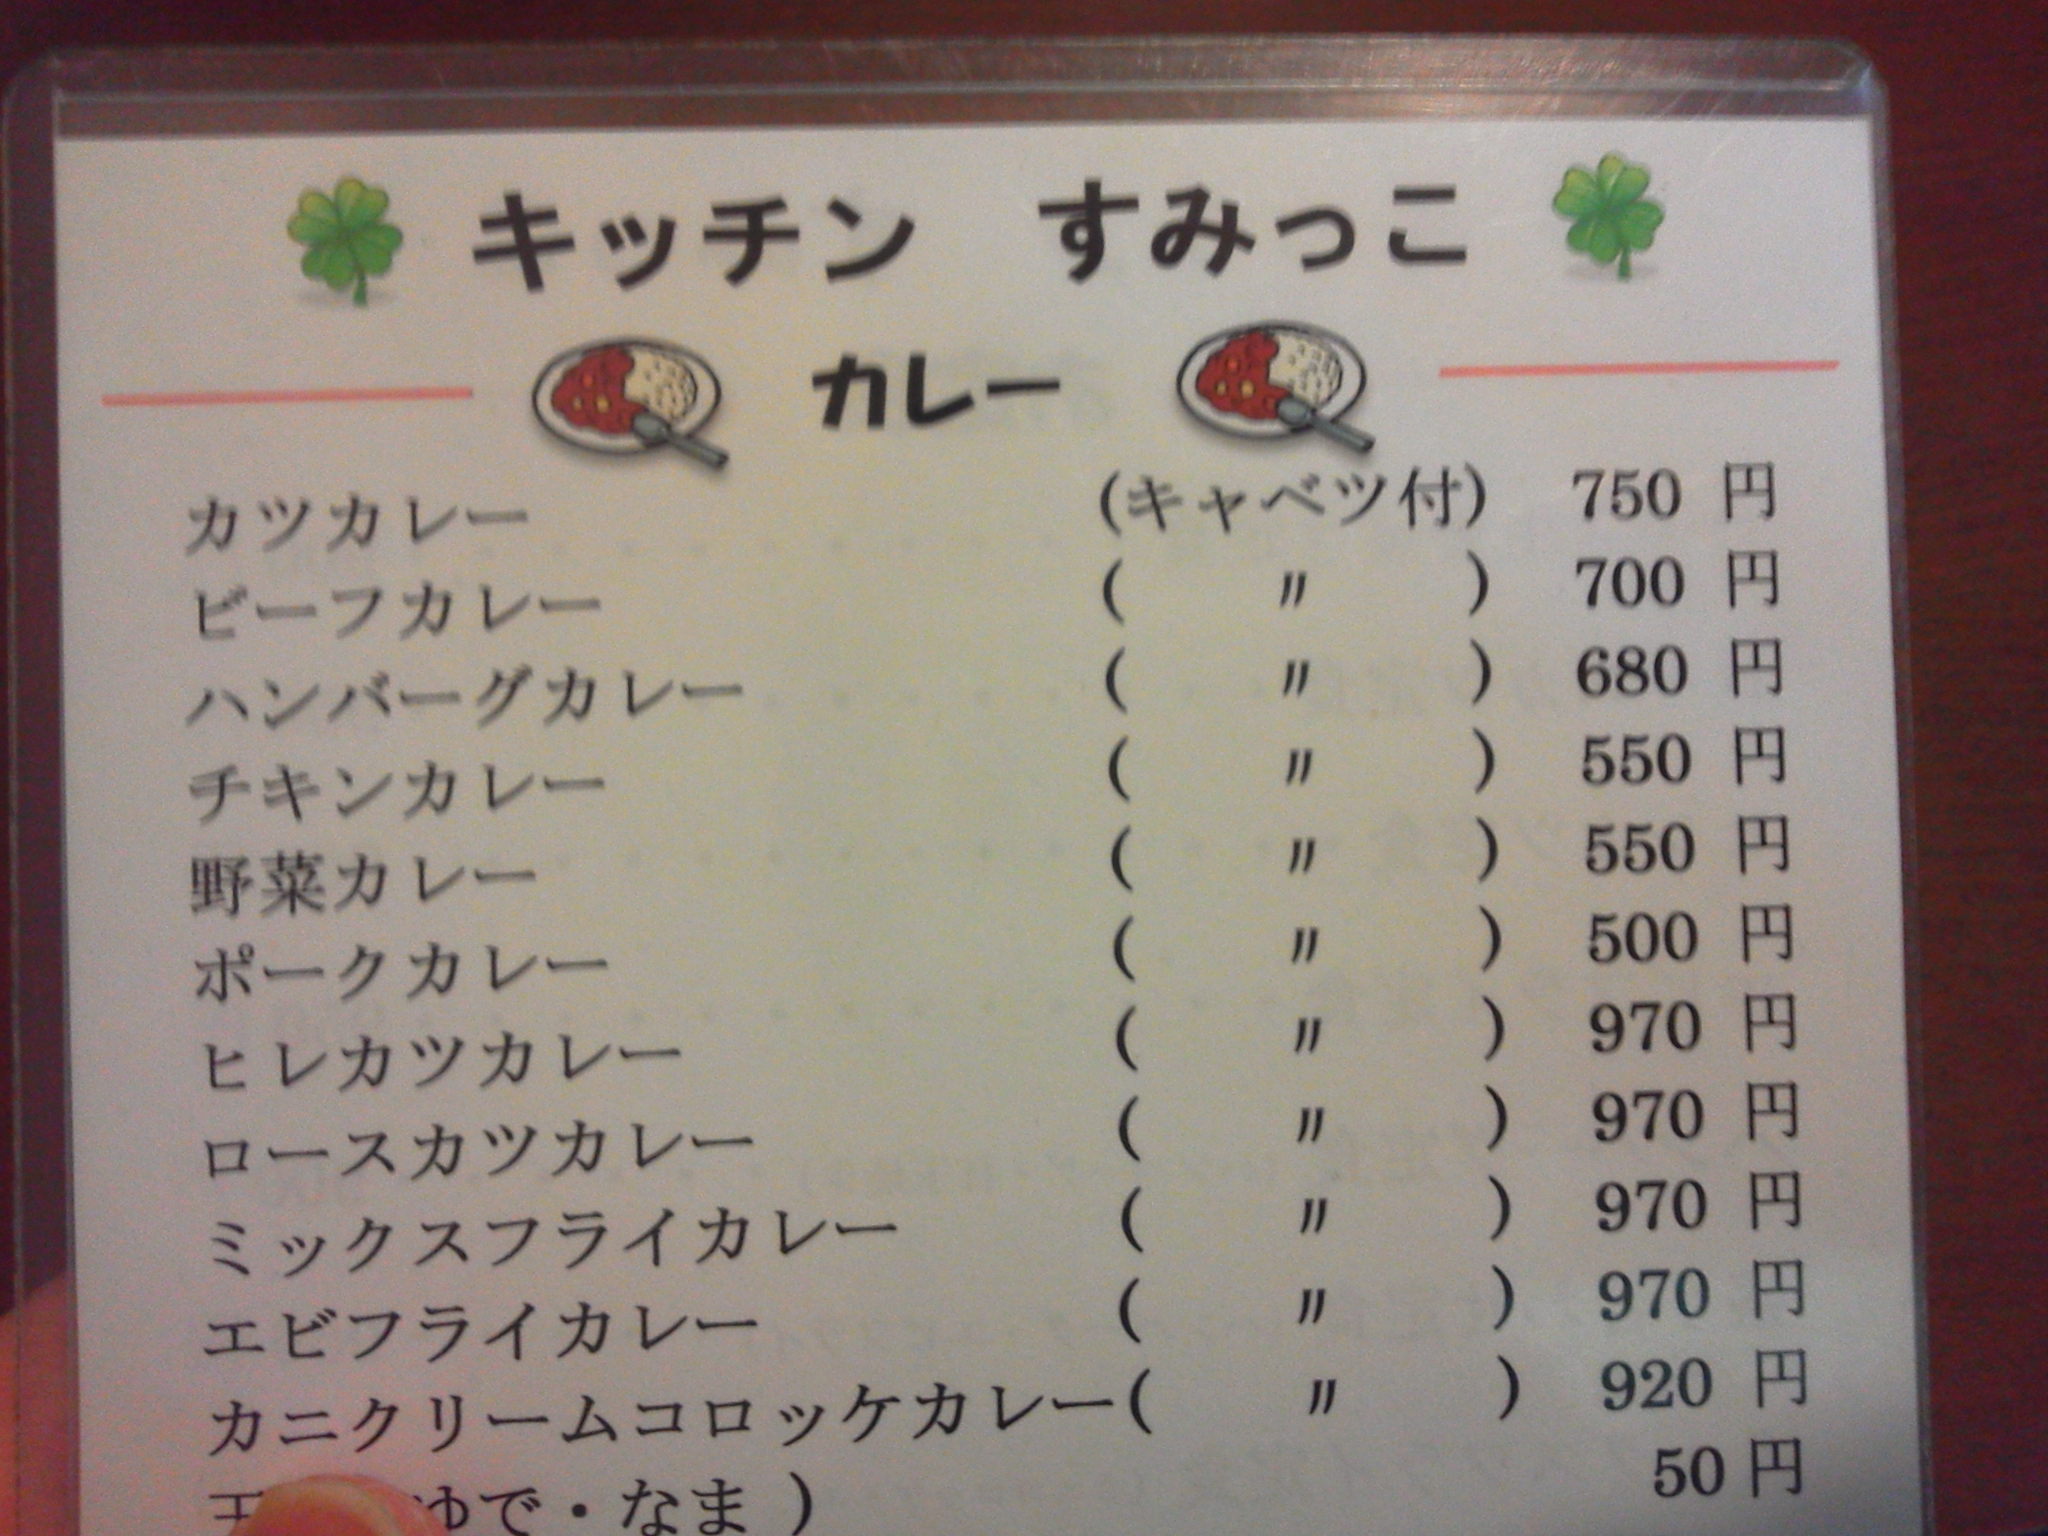 キッチン　すみっこ
カレー
カツカレー (キャベツ付) 750 円
ビーフカレー ( 〃 ) 700 円
ハンバーグカレー ( 〃 ) 680 円
チキンカレー ( 〃 ) 550 円
野菜カレー ( 〃 ) 550 円
ポークカレー ( 〃 ) 500 円
ヒレカツカレー ( 〃 ) 970 円
ロースカツカレー ( 〃 ) 970 円
ミックスフライカレー ( 〃 ) 970 円
エビフライカレー ( 〃 ) 970 円
カニクリームコロッケカレー ( 〃 ) 920 円
ゆで・なま ) 50 円